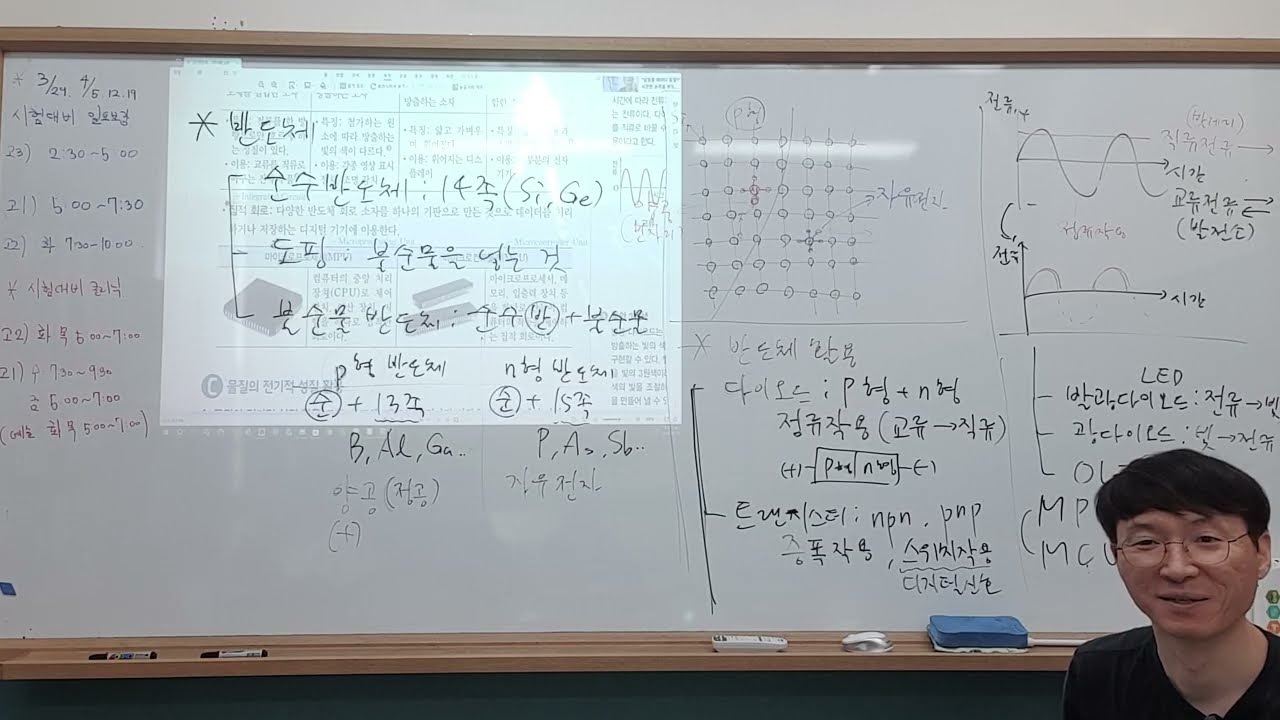 * 3/24, 4/5, 12, 19
시험대비 일요보강
고3) 2:30~5:00
고1) 5:00~7:30
고2) 화 7:30-10:00
* 시험대비 클리닉
고2) 화 목 6:00~7:00
고1) 수 7:30~9:30
금 6:00~7:00
화 목 5:00~7:00)
* 반도체
순수 반도체 : 14족(Si, Ge)
도핑 : 불순물을 넣는 것
불순물 반도체 : 순수 반 + 불순물
p형 반도체
순 + 13족
B, Al, Ga..
양공(정공)
(+)
n형 반도체
순 + 15족
P, As, Sb..
자유전자
방출하는 소자
• 특징: 첨가하는 원
소에 따라 방출하는
빛의 색이 다르다.
• 이용: 각종 영상 표시
• 특징: 얇고 가벼우
• 이용: 휘어지는 디스
플레이
• 이용: 교류를 직류로
• 집적 회로: 다양한 반도체 회로 소자를 하나의 기판으로 만든 것으로 데이터를 처리
하거나 저장하는 디지털 기기에 이용한다.
컴퓨터의 중앙 처리
장치(CPU)로 제어
마이크로프로세서, 메
모리, 입출력 장치 등
는 집적 회로이다.
C 물질의 전기적 성질 활용
시간에 따라 전류
는 전류이다.
를 직류로 바꿀 수
p형
자유전자
전류
직류전류
시간
교류전류
(발전소)
정류작용
전류
시간
* 반도체 활용
다이오드 : p형 + n형
정류작용(교류→직류)
(+) p형 n형 (-)
트랜지스터 : npn, pnp
증폭작용, 스위치작용
디지털신호
LED
발광다이오드 : 전류→빛
광다이오드 : 빛→전류